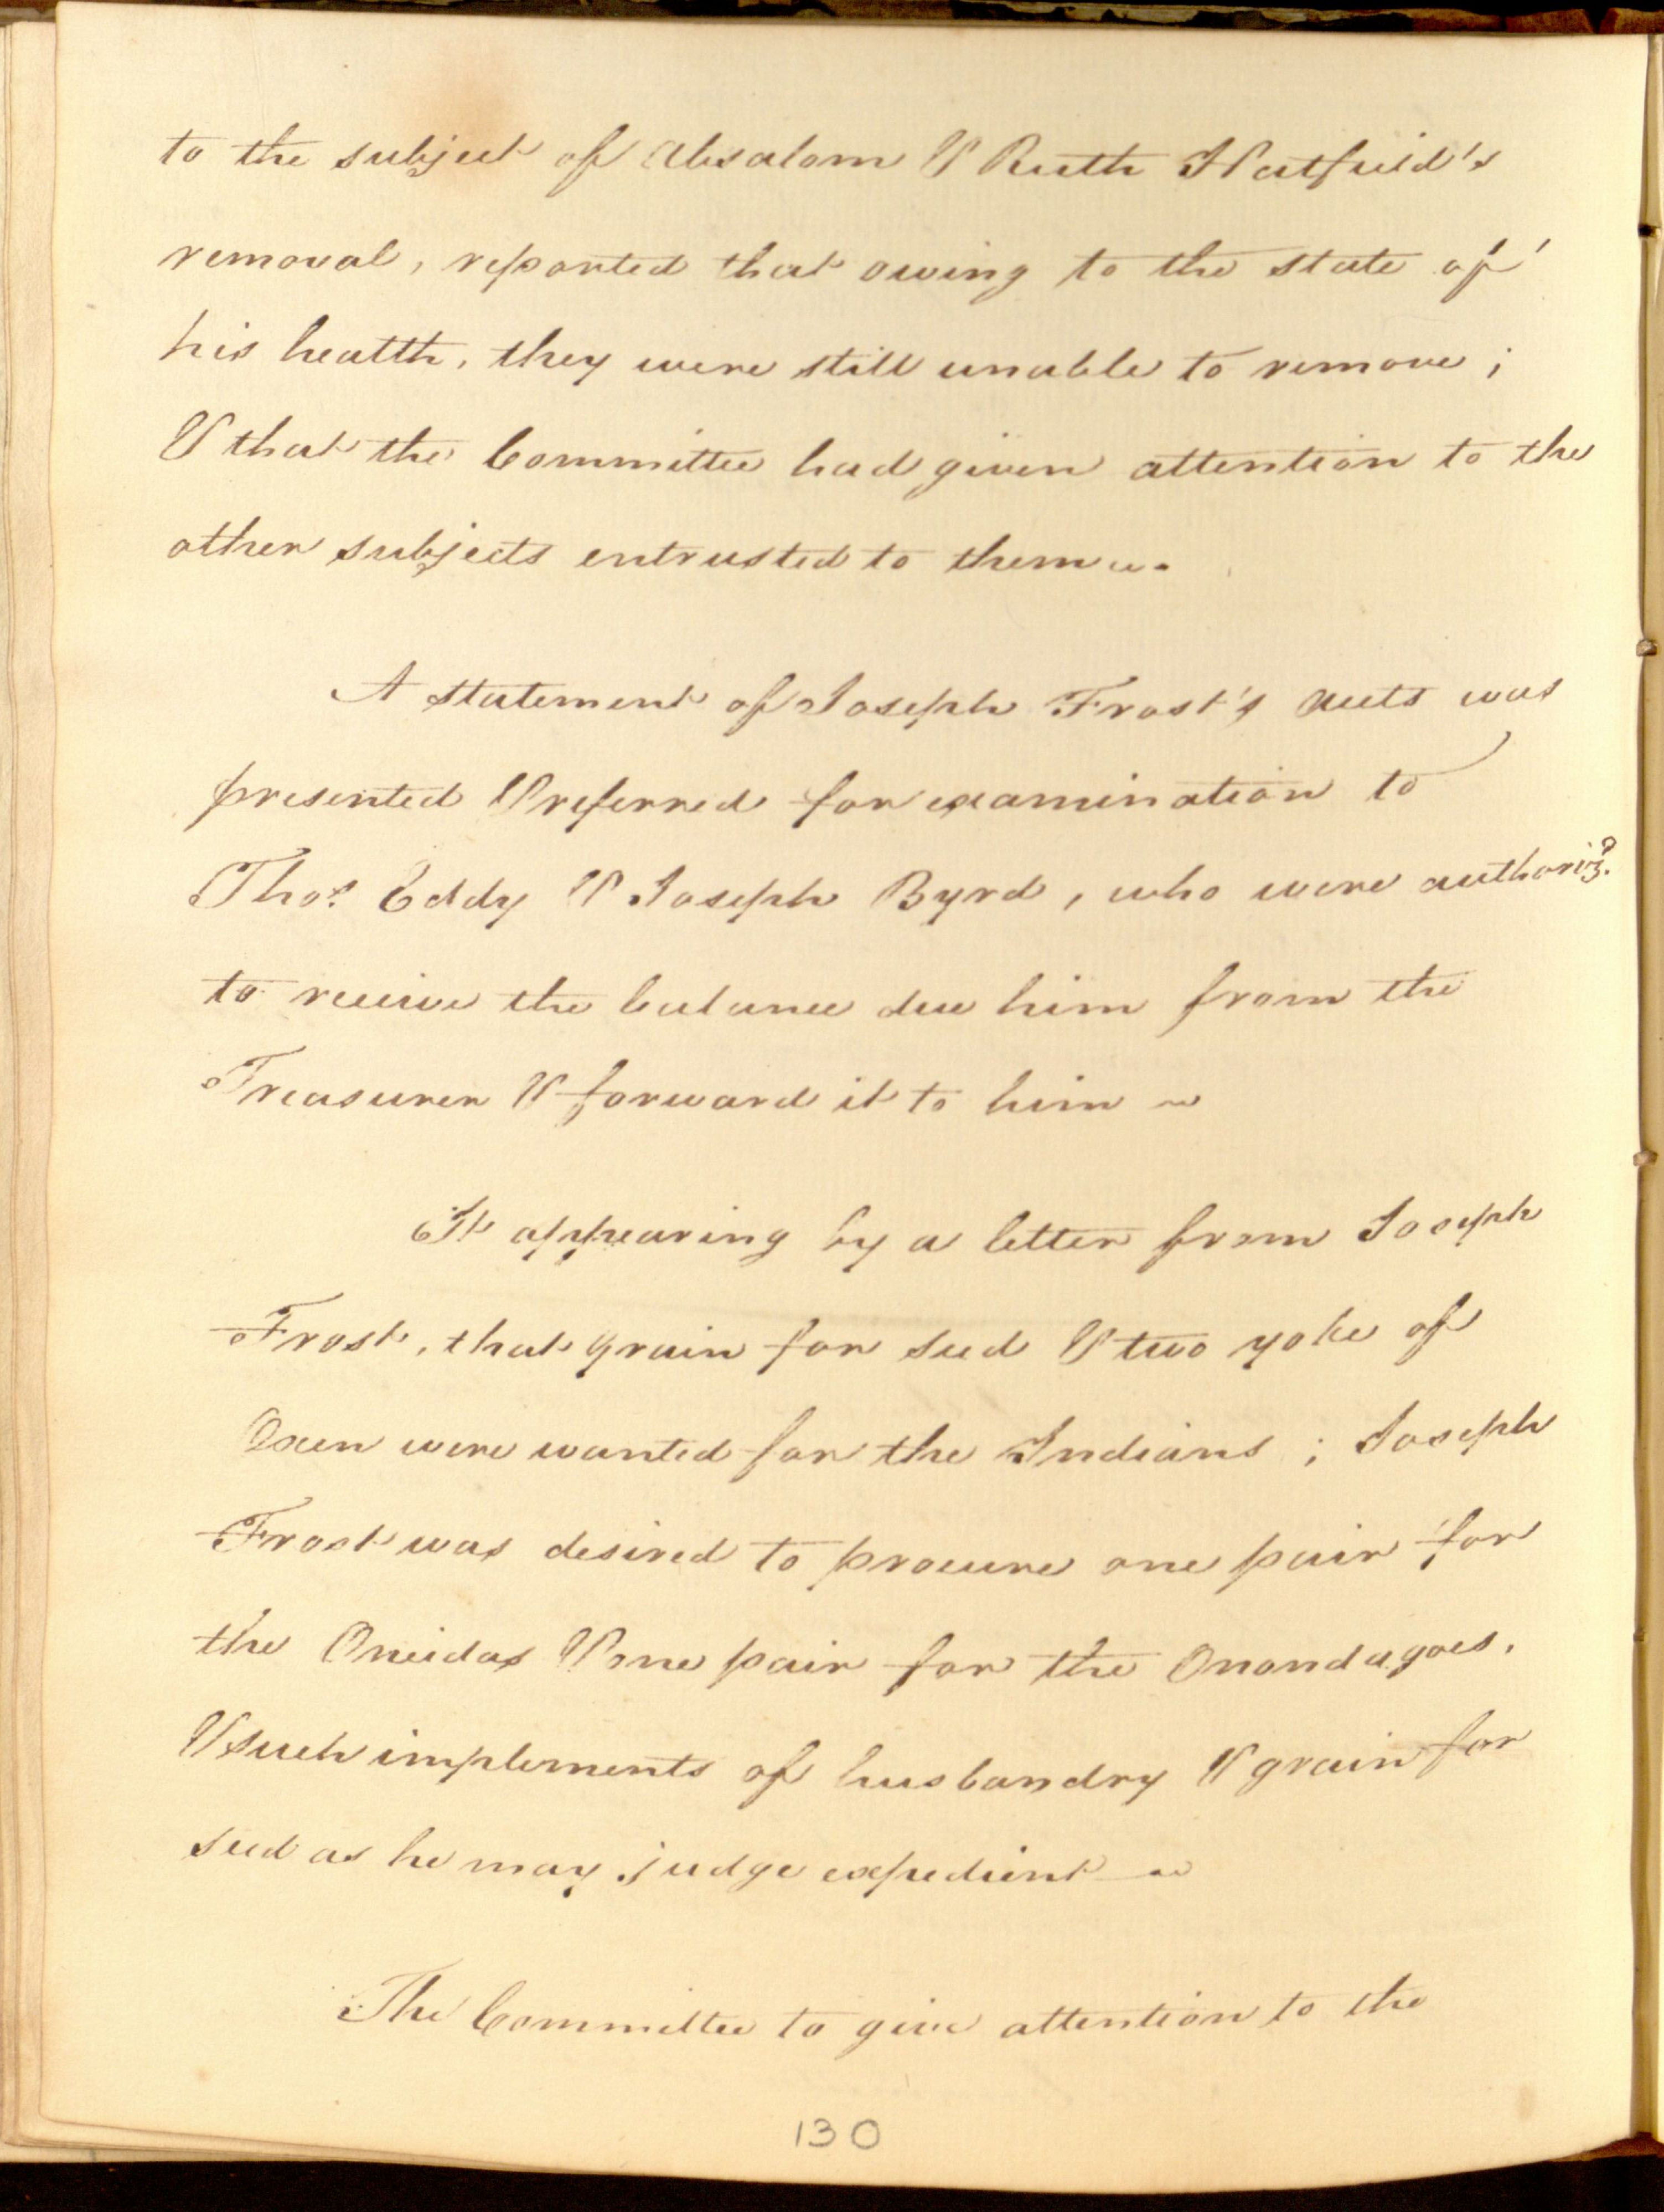 to the subject of Absalom & Ruth Hatfield's
removal, reported that owing to the state of
his health, they were still unable to remove;
& that the Committee had given attention to the
other subjects entrusted to them.
A statement of Joseph Frost's accts was
presented & referred for examination to
Thos. Eddy & Joseph Byrd, who were authorizd.
to receive the balance due him from the
Treasurer & forward it to him ~
It appearing by a letter from Joseph
Frost, that grain for seed & two yoke of
Oxen were wanted for the Indians; Joseph
Frost was desired to procure one pair for
the Oneidas & one pair for the Onondagoes.
& such implements of husbandry & grain for
seed as he may judge expedient ~
The Committee to give attention to the
130